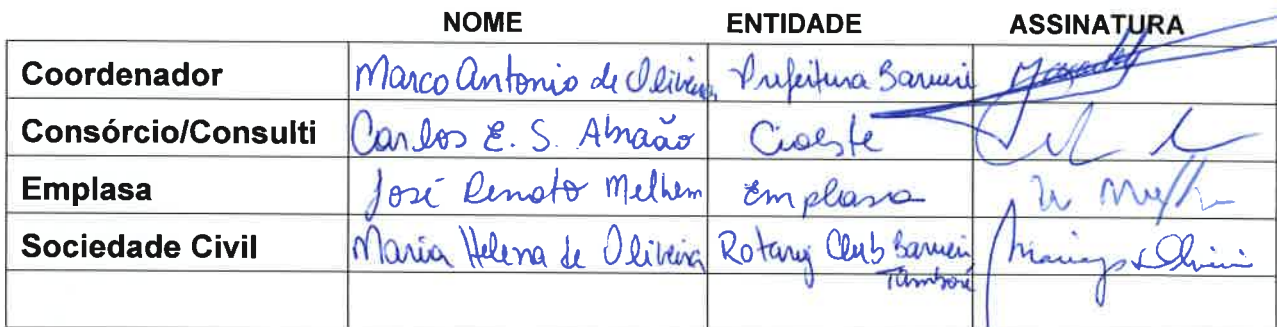 NOME ENTIDADE ASSINATURA
Coordenador Marco Antonio de Oliveira Prefeitura Barueri
Consórcio/Consulti Carlos E. S. Abraão Cioeste
Emplasa José Renato Melhem Emplasa
Sociedade Civil Maria Helena de Oliveira Rotary Club Barueri
Tamboré